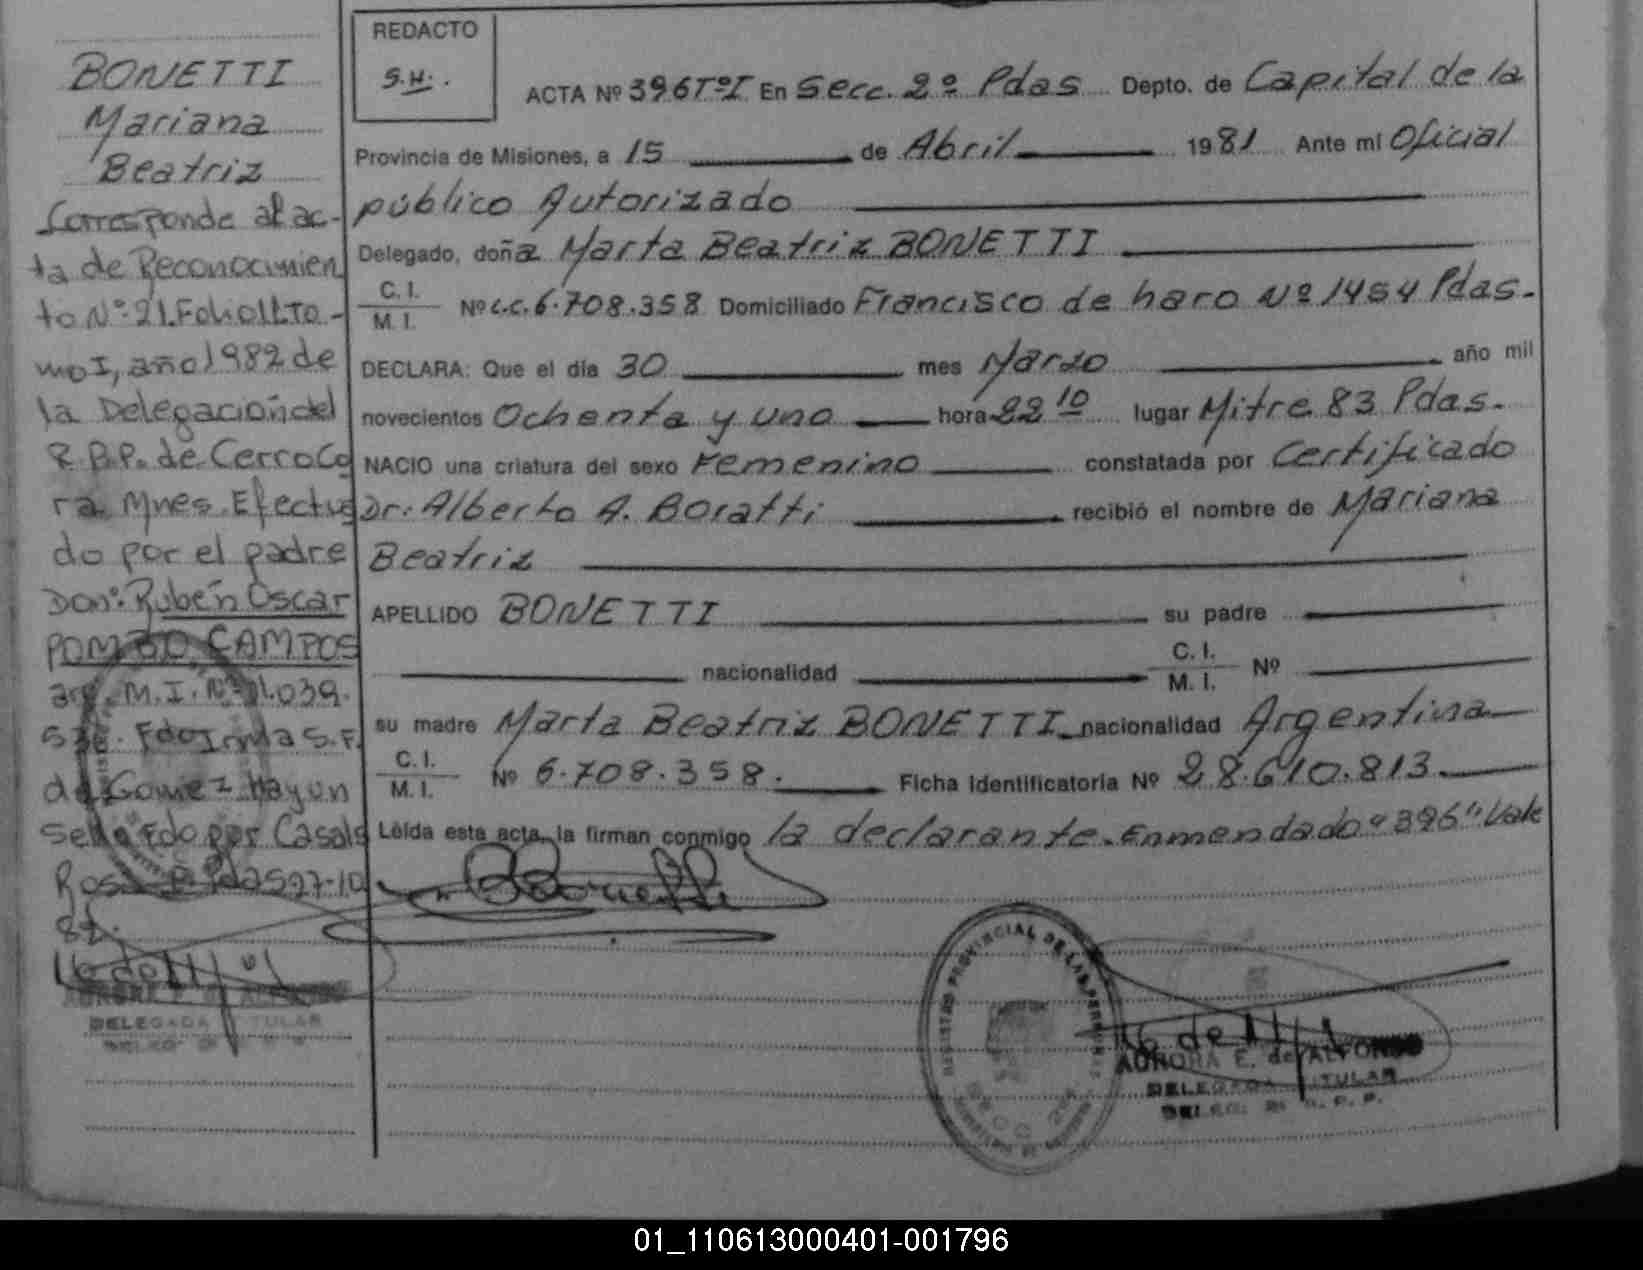 BONETTI
Mariana
Beatriz
Corresponde al ac-
ta de Reconocimien
to Nº 21.Folio11.To-
mo I, año 1982 de
la Delegación del
R.P.P. de Cerro Co
ra. Mnes. Efectua
do por el padre
Don: Rubén Oscar
POMBO CAMPOS
arg. M.I. Nº
Fdo Irma S.F.
de Gomez Hay un
sello Fdo por Casals
Rosa Pdas 27-10
82.
DELEGADA TITULAR
REDACTO
S.H.
ACTA Nº 396 TºI En Secc. 2º Pdas Depto. de Capital de la
Provincia de Misiones, a 15 de Abril 1981 Ante mí Oficial
público Autorizado
Delegado, doña Marta Beatriz BONETTI
C. I.
M. I. Nº L.C. 6.708.358 Domiciliado Francisco de haro Nº 1454 Pdas.
DECLARA: Que el día 30 mes Marzo año mil
novecientos Ochenta y uno hora 22 10 lugar Mitre 83 Pdas.
NACIO una criatura del sexo Femenino constatada por Certificado
Dr. Alberto A. Boratti recibió el nombre de Mariana
Beatriz
APELLIDO BONETTI su padre
nacionalidad C. I.
M. I. Nº
su madre Marta Beatriz BONETTI nacionalidad Argentina
C. I.
M. I. Nº 6.708.358. Ficha Identificatoria Nº 28.610.813.
Leída esta acta, la firman conmigo la declarante. Enmendado "396" Vale
REGISTRO PROVINCIAL DE LAS PERSONAS
AURORA E. de ALFONSO
DELEGADA TITULAR
DELEG. R. P. P.
01_110613000401-001796